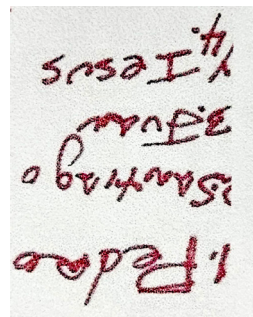 1. Pedro
2 Santiago
3. Juan
Y 4. Jesus